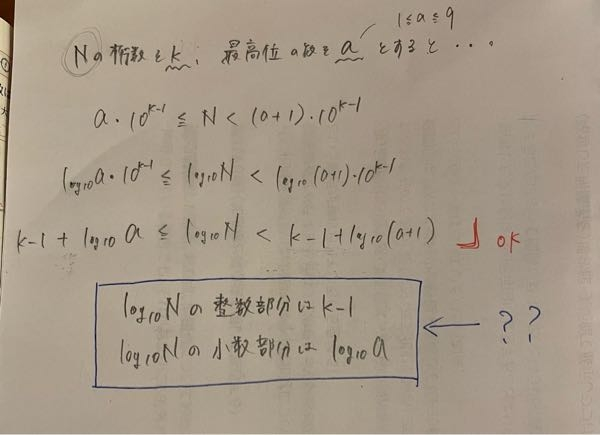 Nの桁数をk、最高位の数をaとすると・・・。
1≦a≦9
a・10^{k-1} ≦ N < (a+1)・10^{k-1}
log₁₀a・10^{k-1} ≦ log₁₀N < log₁₀(a+1)・10^{k-1}
k-1+log₁₀a ≦ log₁₀N < k-1+log₁₀(a+1) 」OK
log₁₀Nの整数部分はk-1
log₁₀Nの小数部分はlog₁₀a
← ??